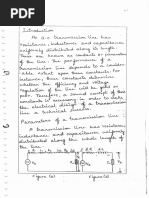 Introduction
As a.c. transmission line has
resistance, inductance and capacitance
uniformly distributed along its length.
These are known as constants or parameters
of the line. The performance of a
transmission line depends to a consider-
able extent upon these constants. For
instance, these constants determine
whether the efficiency and voltage
regulation of the line will be good or
poor. Therefore, a sound concept of these
constants is necessary in order to make
the electrical design of a transmission
line a technical success.
Parameters of a transmission line.
A transmission line has resistance,
inductance and capacitance uniformly
distributed along the whole length of
the line.
figure (a)
figure (b)